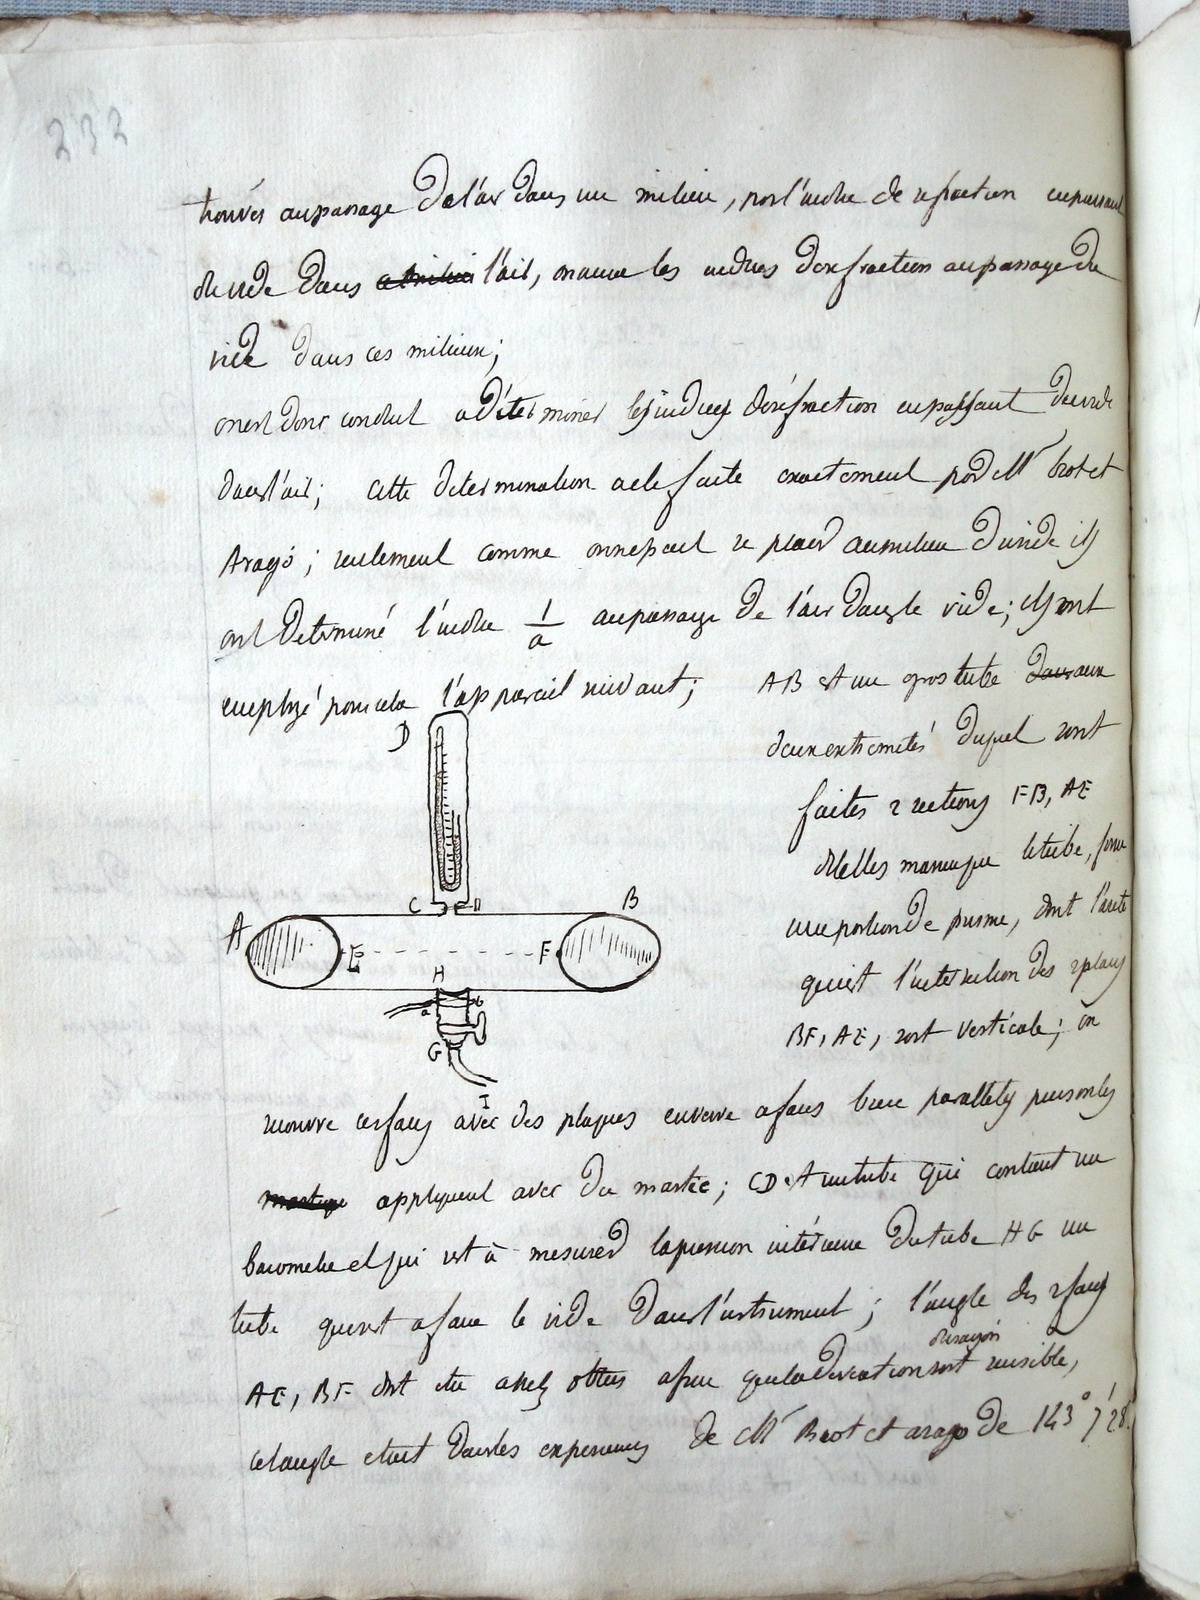 232
trouvés au passage de l'air dans un milieu, par l'indice de refraction en passant
du vide dans l'air, on aura les indices de refraction au passage du
vide dans ces milieux;
on est donc conduit a déterminer les indices de réfraction en passant du vide
dans l'air; cette determination a ete faite exactement par de Mr biot et
Arago; seulement comme on ne peut se placer au milieu du vide ils
ont determiné l'indice 1/a au passage de l'air dans le vide; ils ont
employé pour cela l'appareil suivant; AB est un gros tube aux
deux extremités duquel sont
faites 2 sections FB, AE
telles manque le tube, forme
une portion de prisme, dont l'arête
qui est l'intersection des 2 plans
BF, AE, soit verticale; on
D
C
A
B
E
F
H
a
b
G
I
recouvre ces faces avec des plaques en verre a faces bien paralleles
appliquent avec du mastic; CD est un tube qui contient un
barometre et qui sert à mesurer la pression intérieure du tube HG un
tube qui sert a faire le vide dans l'instrument; l'angle des 2 faces
du rayon
AE, BF doit etre assez obtus afin que la deviation soit sensible,
cet angle etait dans les experiences de Mr Biot et arago de 143° 7' 28"